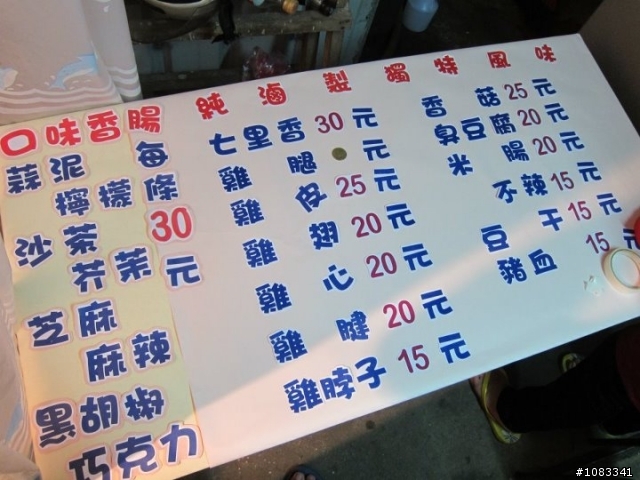 純滷製獨特風味
口味香腸
蒜泥
檸檬
沙茶
芥茉
芝麻
麻辣
黑胡椒
巧克力
每條30元
七里香30元
雞腿 元
雞皮25元
雞翅20元
雞心20元
雞腱20元
雞脖子15元
香菇25元
臭豆腐20元
米腸20元
不辣15元
豆干15元
豬血15元
#1083341